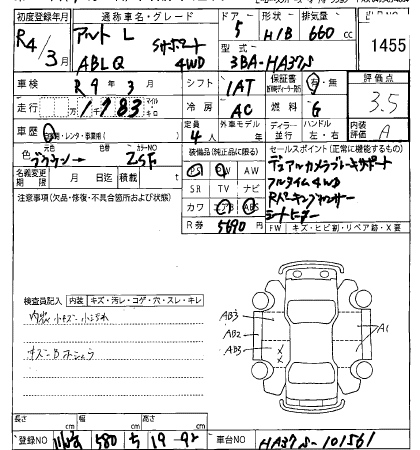 初度登録年月 通称車名・グレード ドア 形状 排気量
R4/3 アルト L サポート 5 H/B 660 cc 1455
ABLQ 4WD 型式 3BA-HA37S
車検 R 9年 3月 シフト IAT 保証書 有・無 評価点
走行 1783 マイル キロ 冷房 AC 燃料 G 3.5
車歴 自家用・レンタ・事業用( ) 定員 4人 外車モデル ディーラー 並行 ハンドル 左・右 内装評価 A
色 元色 色替 カラーNO 装備品(純正品に限る) セールスポイント(正常に機能するもの)
ブラウン→ ZSF PS PW AW デュアルカメラブレーキサポート
名義変更期限 月 日迄 積載 t SR TV ナビ フルタイム4WD
注意事項(欠品・修復・不具合箇所および状態) カワ エアB ABS Rパーキングセンサー
R券 5690円 シートヒーター
FW キズ・ヒビ割・リペア跡・X要
検査員記入 内装 キズ・汚レ・コゲ・穴・スレ・キレ
内装小キズ小汚れ
AB3
AB2
AB3
A1
長さ cm 幅 cm 高さ cm
登録NO 580 ち 19-92 車台NO HA37S-101561